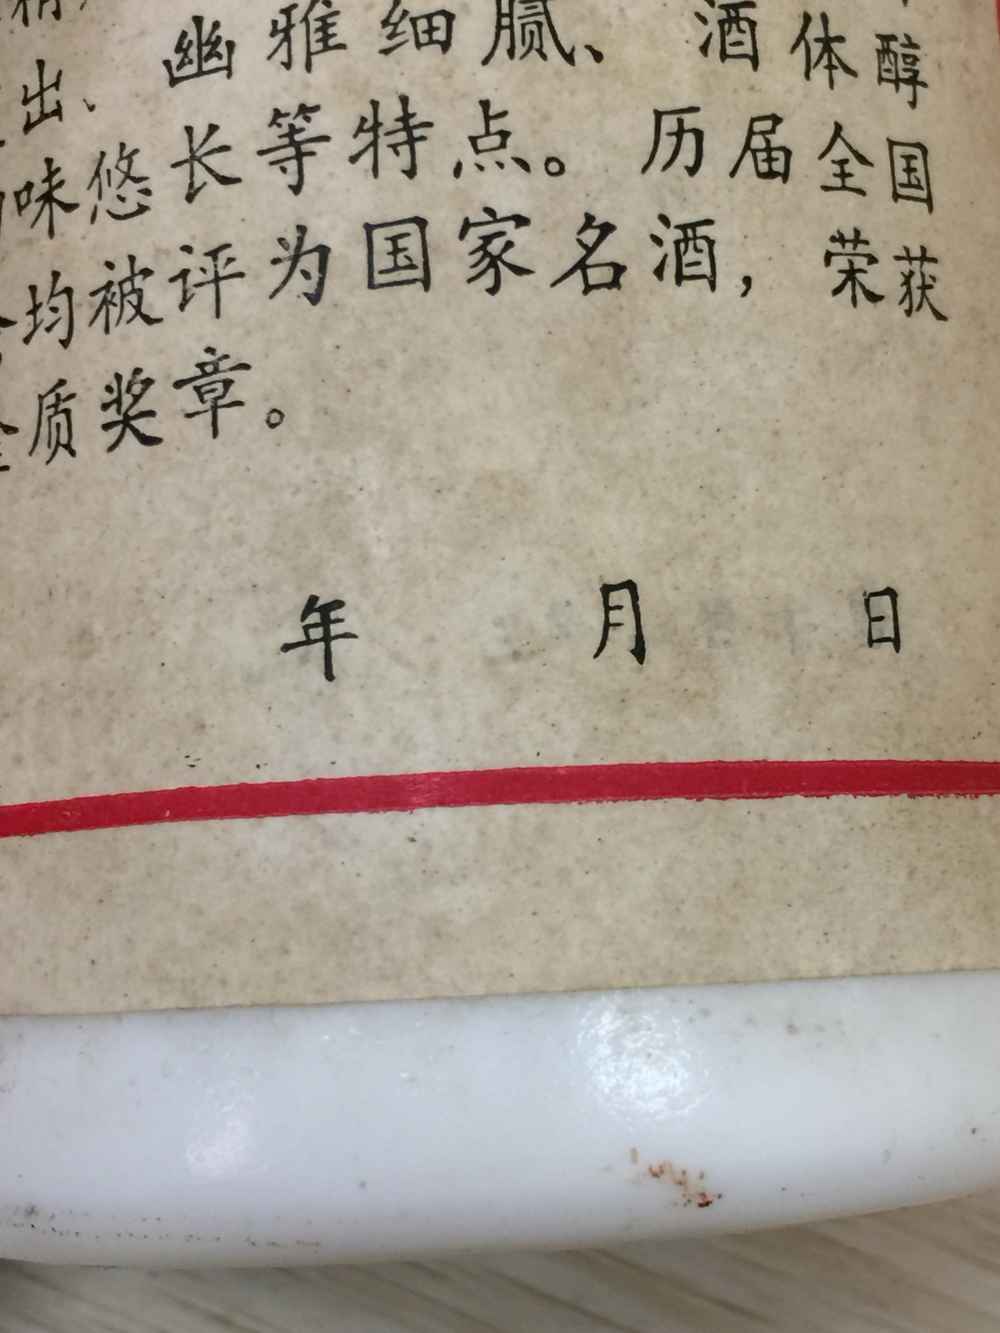 出、幽雅细腻、酒体醇
味悠长等特点。历届全国
均被评为国家名酒，荣获
质奖章。
年 月 日